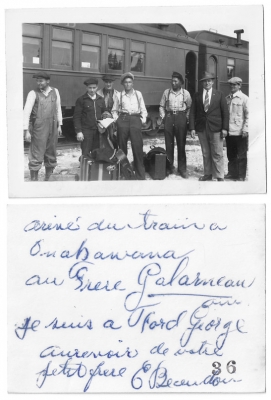 arivé du train a
Onakawana
au Frere Galarneau
omi
je suis a Ford George
aurevoir de votre
petit frere E
36